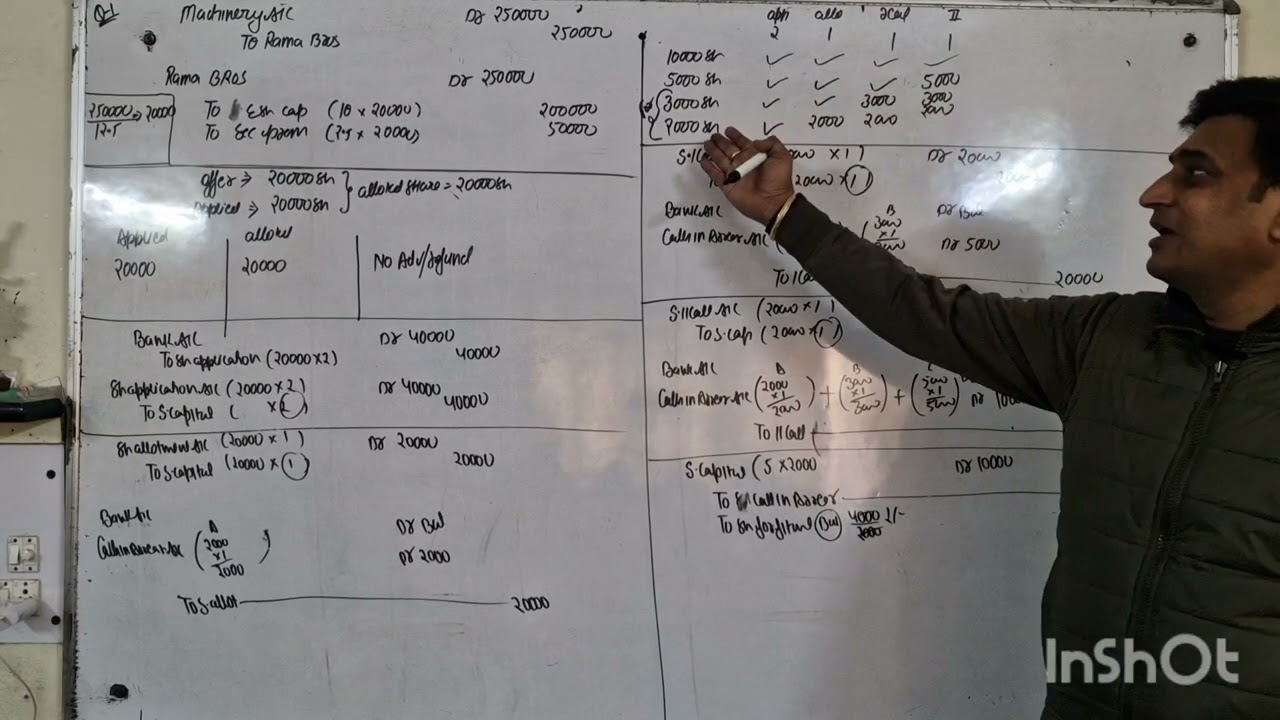 Q-1
Machinery A/C Dr 250000
To Rama Bros 250000
Rama BROS Dr 250000
To Esh cap (10 x 20000) 200000
To Sec prem (2.5 x 20000) 50000
250000 = 20000
12.5
offer => 20000 sh
Applied => 20000 sh
alloted share = 20000 sh
Applied alloted
20000 20000 No Adv/refund
Bank A/C Dr 40000
To sh application (20000 x 2) 40000
Sh application A/C (20000 x 2) Dr 40000
To S capital ( x 2) 40000
Sh allotment A/C (20000 x 1) Dr 20000
To S capital (20000 x 1) 20000
Bank A/C Dr Bal
Calls in Arrear A/C ( A 2000 x1 2000 ) Dr 2000
To S allot 20000
app allo I call II
2 1 1 1
10000 sh ✓ ✓ ✓ ✓
5000 sh ✓ ✓ ✓ 5000
3000 sh ✓ ✓ 3000 3000
2000 sh ✓ 2000 2000 2000
x 1) Dr 20000
20000 x 1)
Bank A/C B Dr Bal
Calls in Arrear A/C 3000 x1 3000 Dr 5000
To I Call 20000
S. II Call A/C (20000 x 1)
To S. cap (20000 x 1)
Bank A/C
Calls in Arrear A/C ( A 2000 x1 2000 ) + ( B 3000 x1 3000 ) + ( C 5000 x1 5000 )
To II Call
S. Capital (5 x 2000 Dr 10000
To Call in Arrear
To Sh forfeiture (Bal) 4000 2/-
2000
InShOt